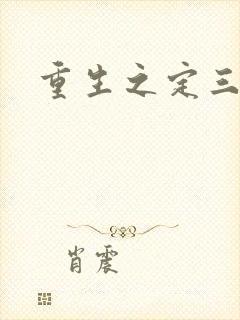 重生之定三
肖震